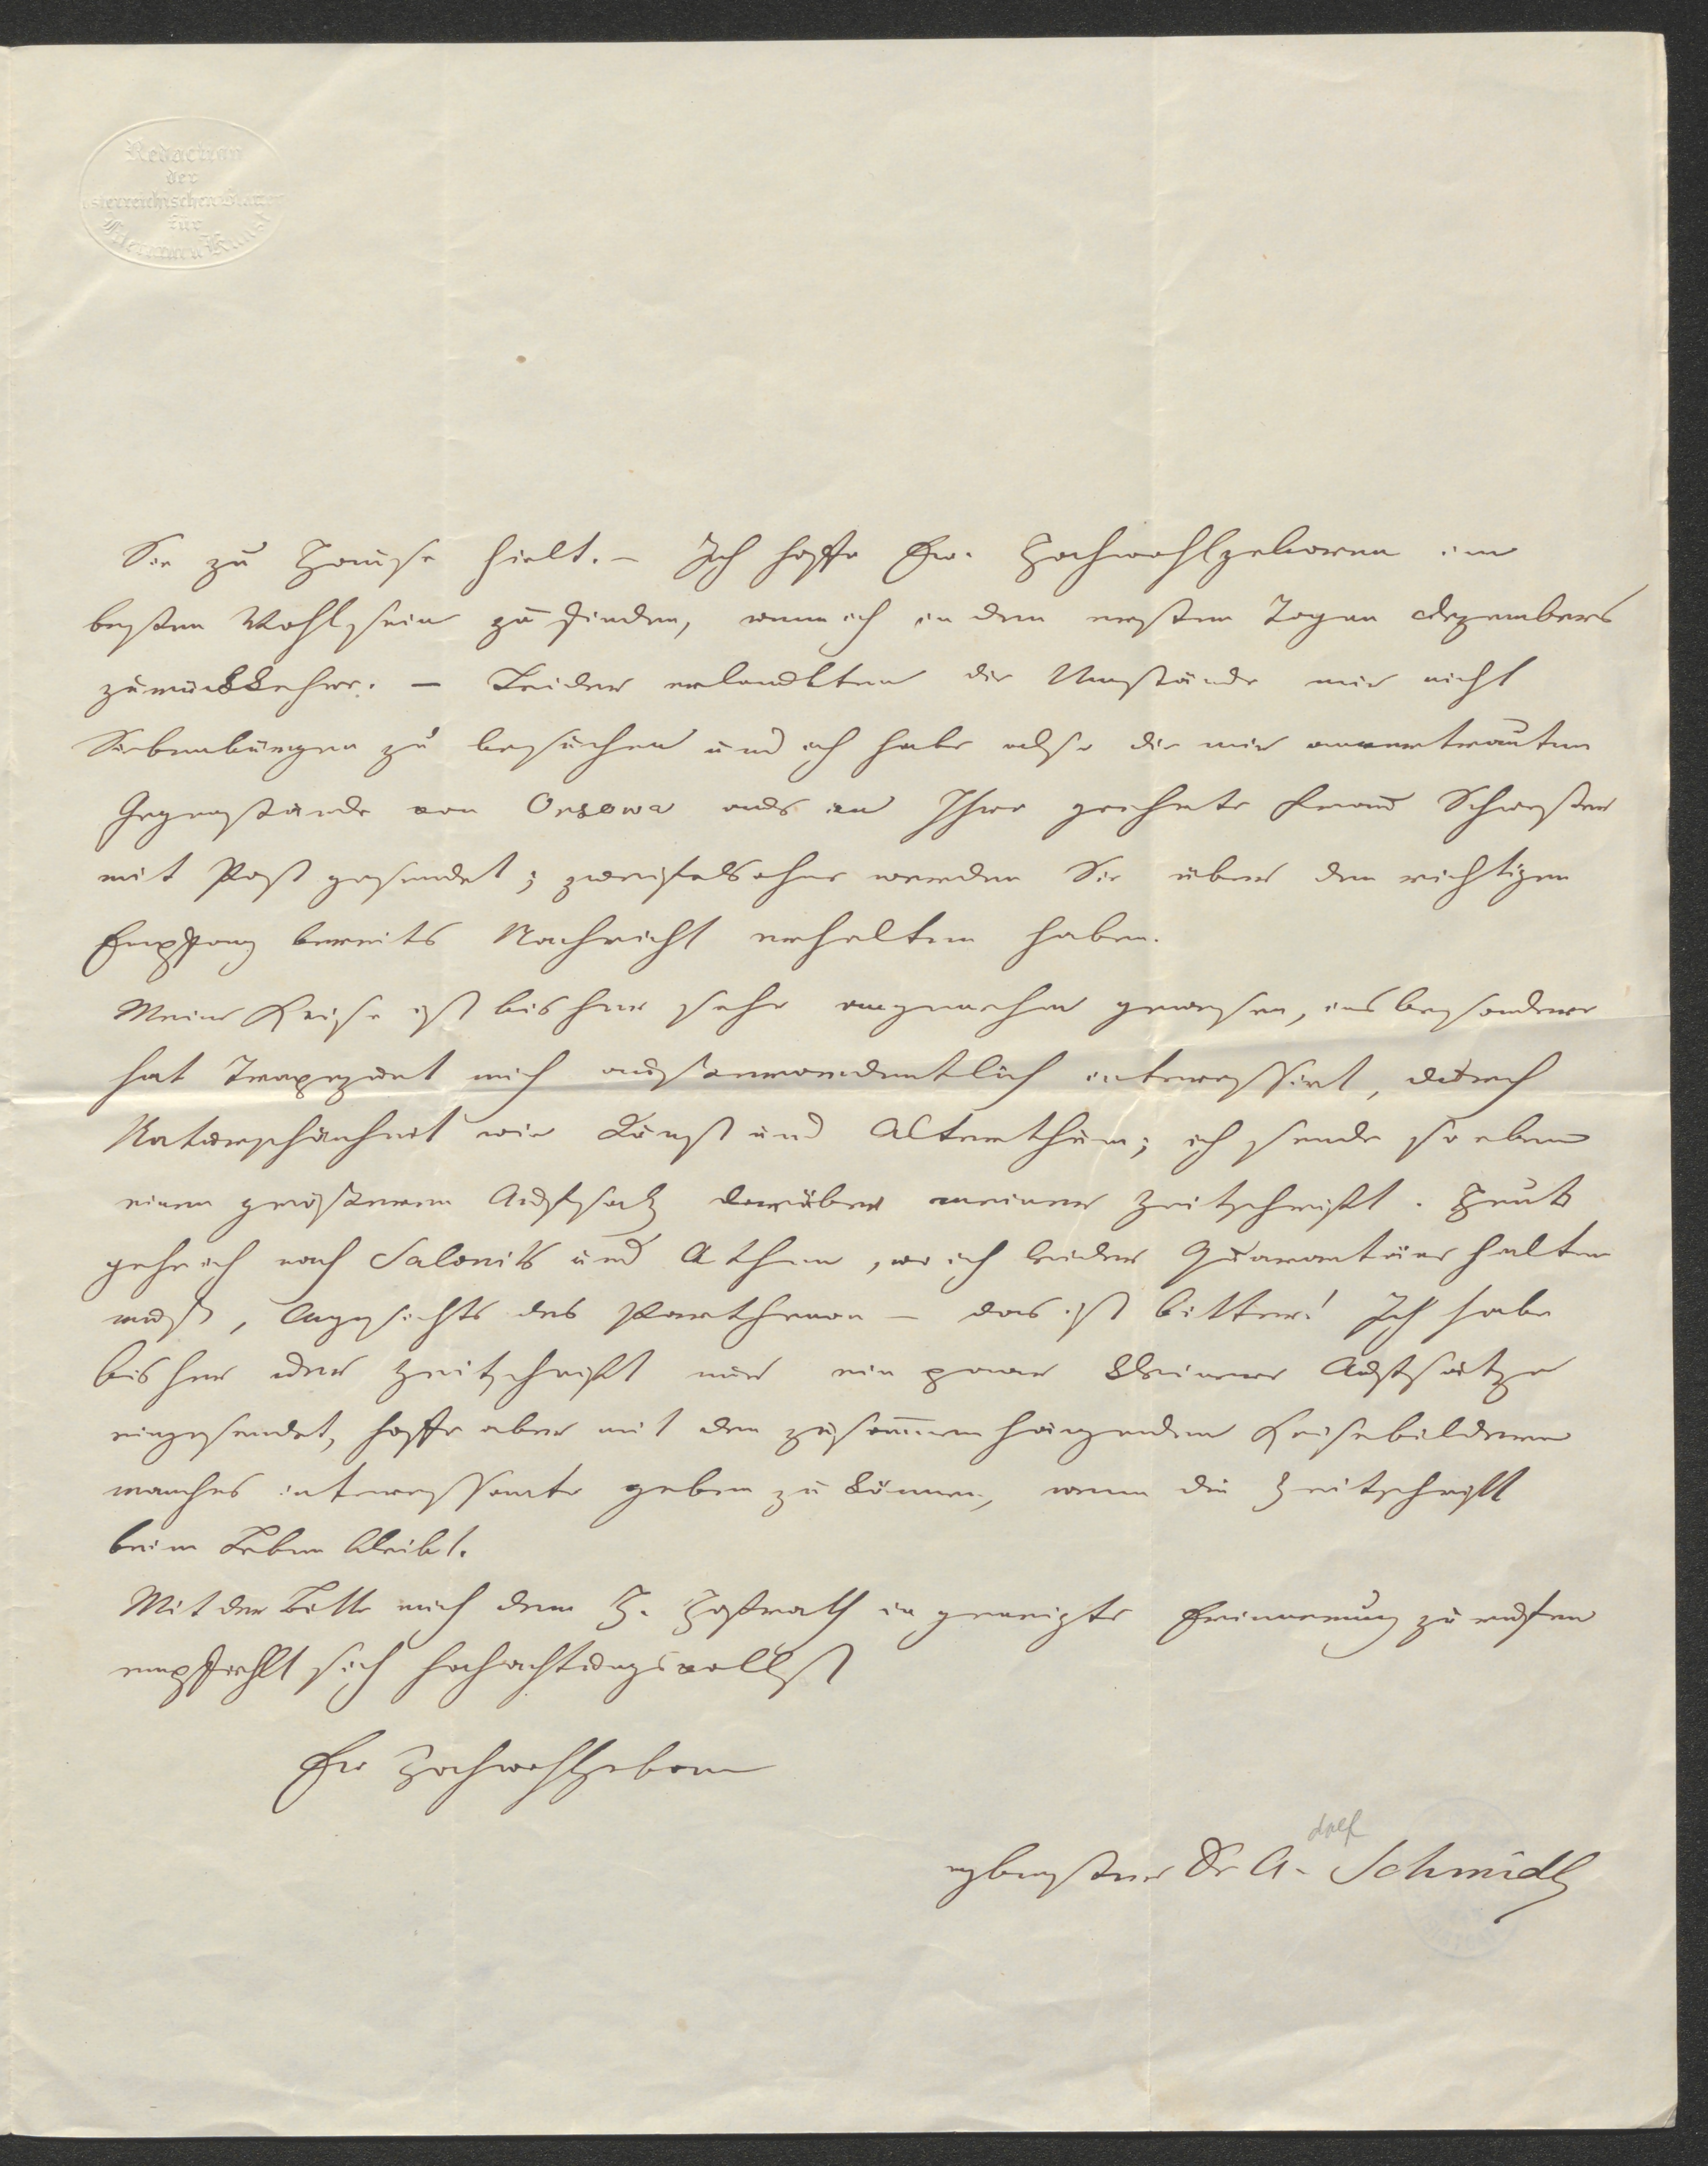 Redaction
der
österreichischen Blätter
für
Literatur u. Kunst
Sie zu Hause hielt. – Ich hoffe Ew. Hochwohlgeboren im
besten Wohlsein zu finden, wenn ich in den ersten Tagen Dezembers
zurückkehre. – Leider erlaubten die Umstände mir nicht
Siebenbürgen zu besuchen und ich habe also die mir anvertrauten
Gegenstände von Orsowa aus an Ihre geehrte Frau Schwester
mit Post gesendet; zweifelsohne werden Sie über den richtigen
Empfang bereits Nachricht erhalten haben.
Meine Reise ist bisher sehr angenehm gewesen, insbesondere
hat Trapezunt mich außerordentlich interessirt, durch
Naturschönheit wie Kunst und Alterthum; ich sende so eben
einen größeren Aufsatz darüber meiner Zeitschrift. Heute
gehe ich nach Salonik und Athen, wo ich leider Quarantäne halten
muß, Angesichts des Parthenon – das ist bitter! Ich habe
bisher der Zeitschrift nur ein paar kleinere Aufsätze
eingesendet, hoffe aber mit den zusam̅enhängenden Reisebildern
manches interessante geben zu können, wenn die Zeitschrift
beim Leben bleibt.
Mit der Bitte mich dem H. Hofrath in geneigte Erinnerung zu rufen
empfiehlt sich hochachtungsvollst
Ew Hochwohlgeborn
dolf
ergebenster Dr A. Schmidl